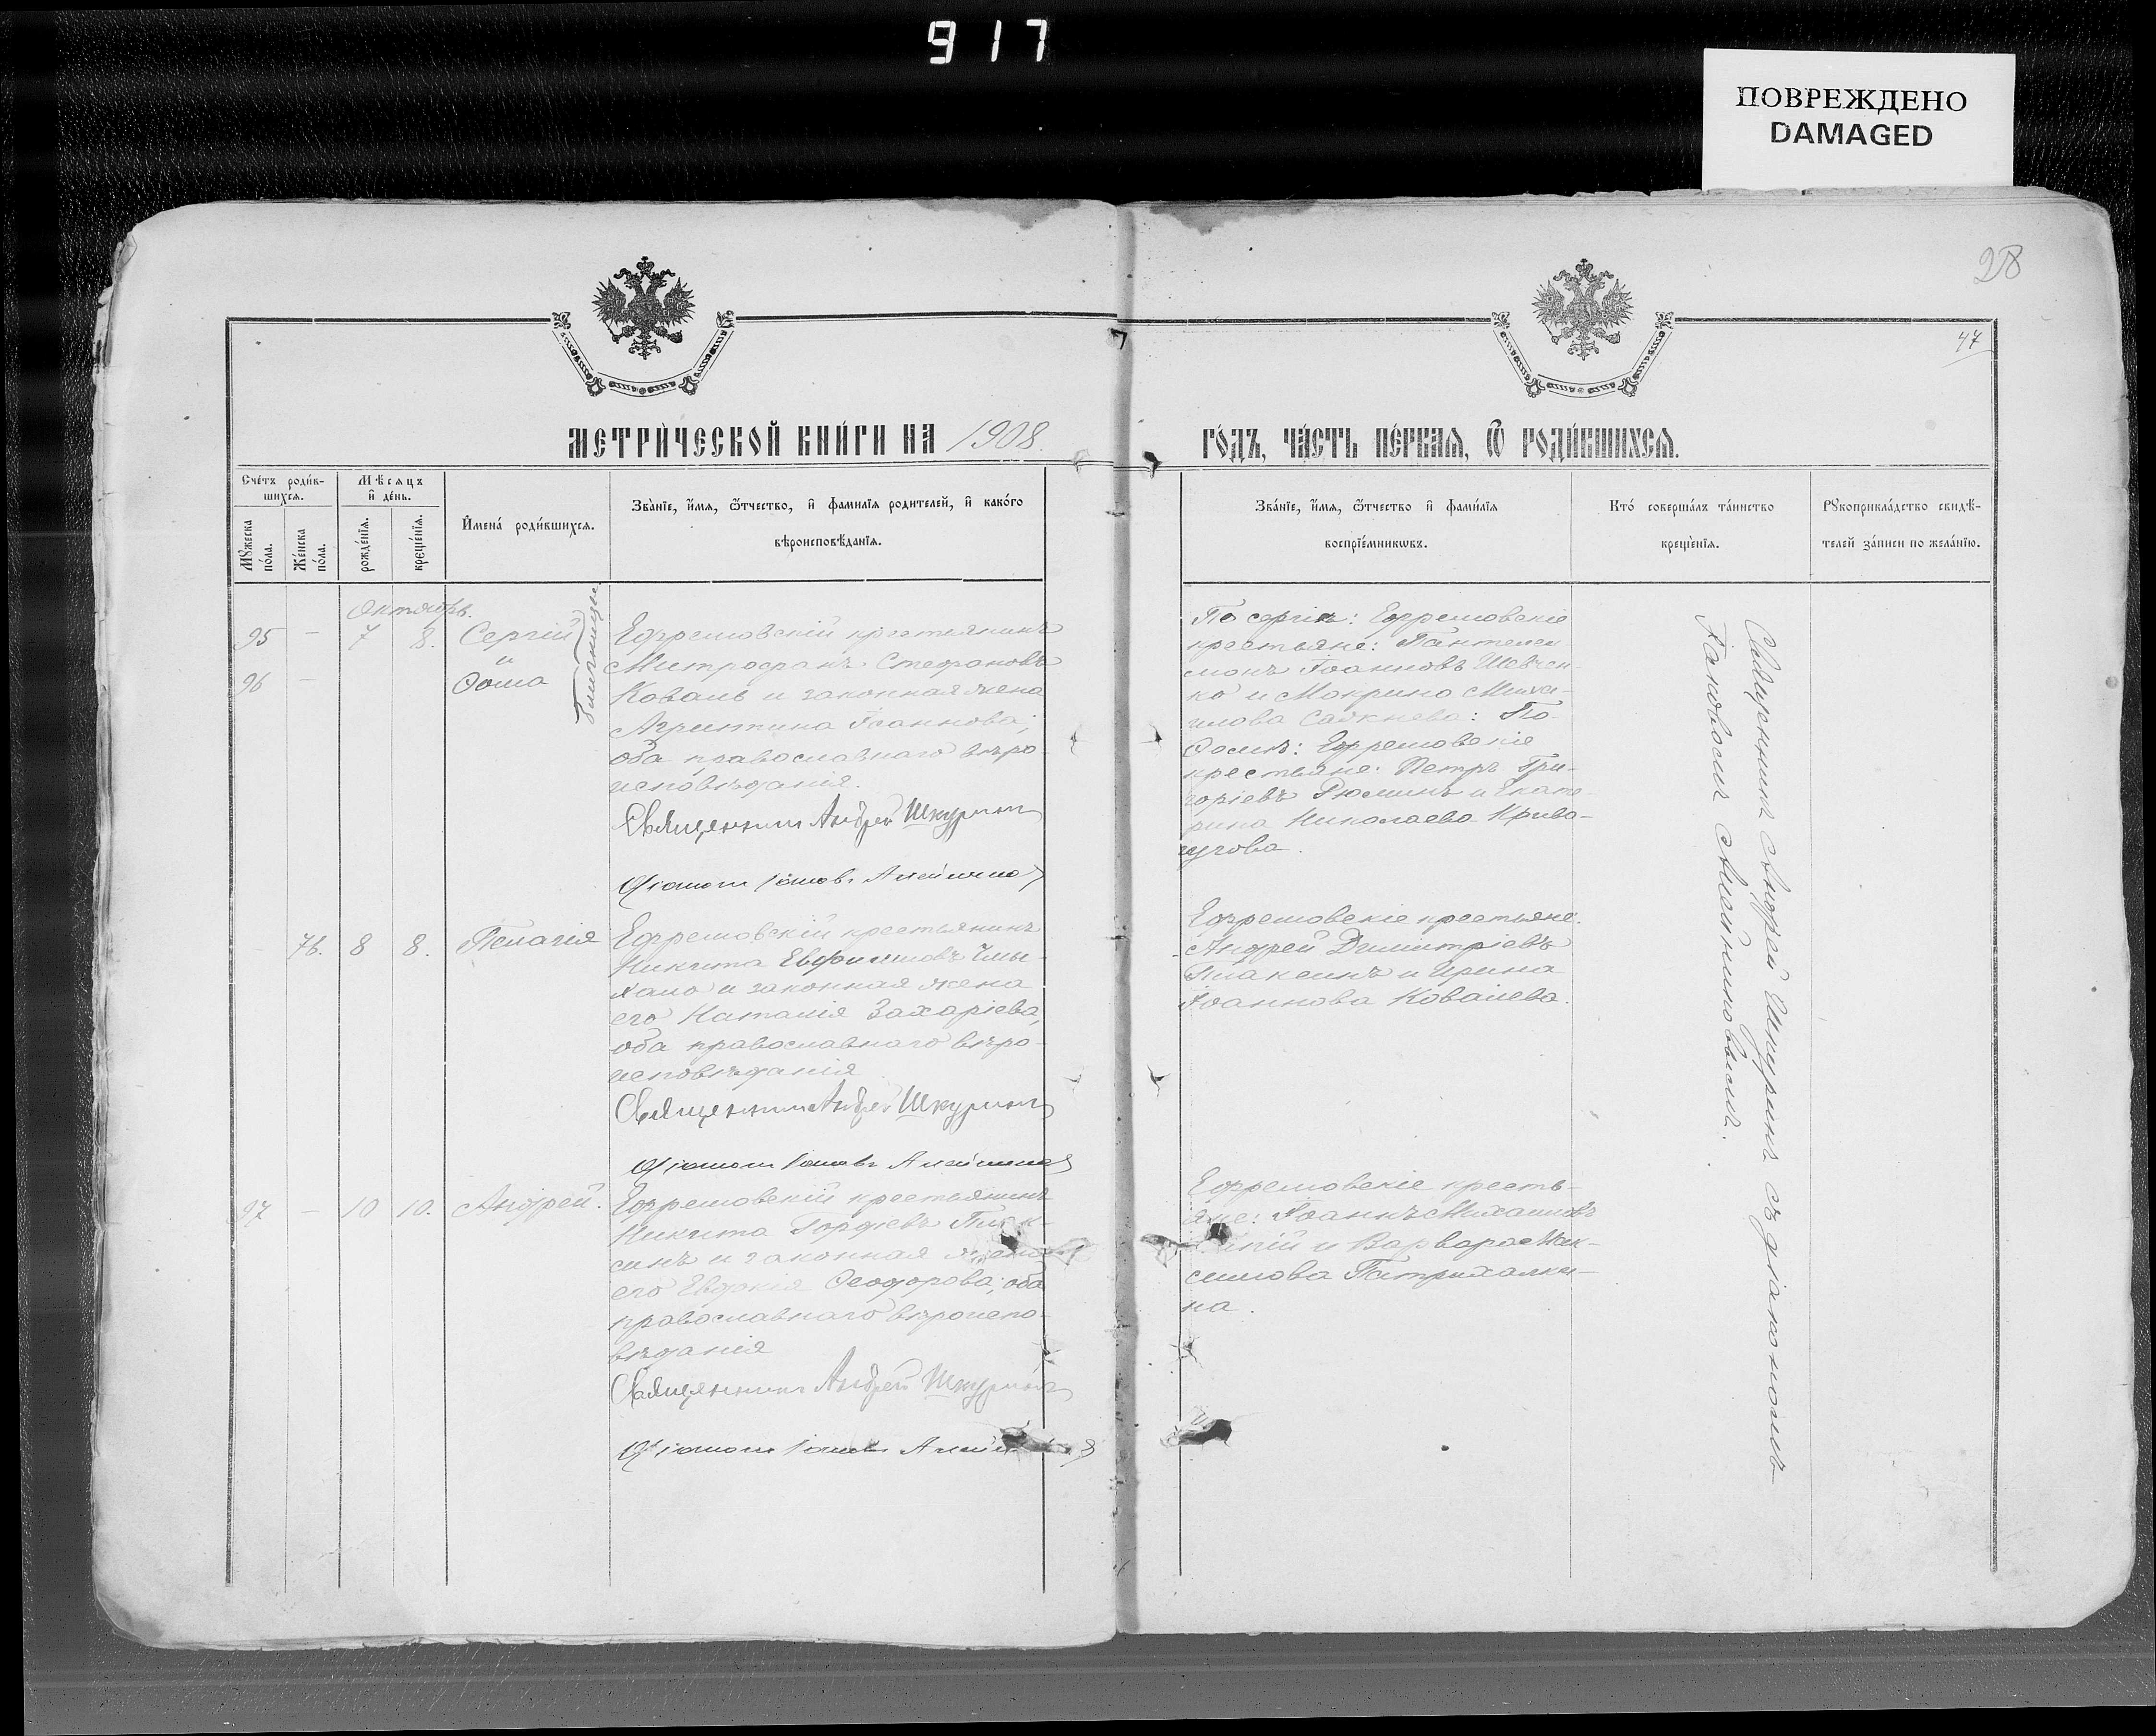 917
ПОВРЕЖДЕНО
DAMAGED
28
47
МЕТРИ́ЧЕСКОЙ КНИ́ГИ НА 1908
ГО́ДЪ, ЧА́СТЬ ПЕ́РВАѦ, Ѿ РОДИ́ВШИХСѦ.
Сче́тъ роди́в-
шихсѧ.
Мꙋжеска по́ла.
Же́нска по́ла.
Мѣ́сѧцъ
и҆ де́нь.
рожде́нїѧ.
креще́нїѧ.
И҆мена́ роди́вшихсѧ.
Зва́нїе, и҆́мѧ, ѻ҆́тчество, и҆ фами́лїѧ родителей, и҆ како́го
вѣроисповѣ́данїѧ.
Зва́нїе, и҆́мѧ, ѻ҆́тчество и҆ фами́лїѧ
воспрїе́мникѡвъ.
Кто́ соверша́лъ та́инство
креще́нїѧ.
Рꙋкоприкла́дство свидѣ́-
телей за́писи по жела́нїю.
Октябрь.
95 – 7 8. Сергій
и
96 – Ѳома
близнецы
Ефремовскій крестьянинъ
Митрофанъ Стефановъ
Коваль и законная жена
Агриппина Іоаннова;
оба православнаго вѣро-
исповѣданія.
Священникъ Андрей Шкуринъ
Діаконъ Іаковъ Алейников
По сергію: Ефремовскіе
крестьяне: Пантелеи
монъ Іоанновъ Шевчен-
ко и Мокрина Миха-
илова: По
Ѳомѣ: Ефремовскіе
крестьяне: Петръ Гри-
горіевъ Рюминъ и Екате-
рина Николаева Криво-
76. 8 8. Пелагія
Ефремовскій крестьянинъ
Никита Евфимовъ Чмы-
хало и законная жена
его Наталія Захаріева,
оба православнаго вѣро-
исповѣданія
Священникъ Андрей Шкуринъ
Діаконъ Іаковъ Алейников
Ефремовскіе крестьяне:
Андрей Димитріевъ
Плаксинъ и Ирина
Іоаннова Ковалева.
97 – 10 10. Андрей.
Ефремовскій крестьянинъ
Никита Гордіевъ Плак-
синъ и законная жена
его Евдокія Ѳеодорова; оба
православнаго вѣроиспо-
вѣданія
Священникъ Андрей Шкуринъ
Діаконъ Іаковъ
Ефремовскіе кресть-
яне: Іоаннъ Михаиловъ
и Варвара Мак-
симова Патрихалки-
на.
Священникъ Андрей Шкуринъ съ діакономъ
Іаковомъ Алейниковымъ.